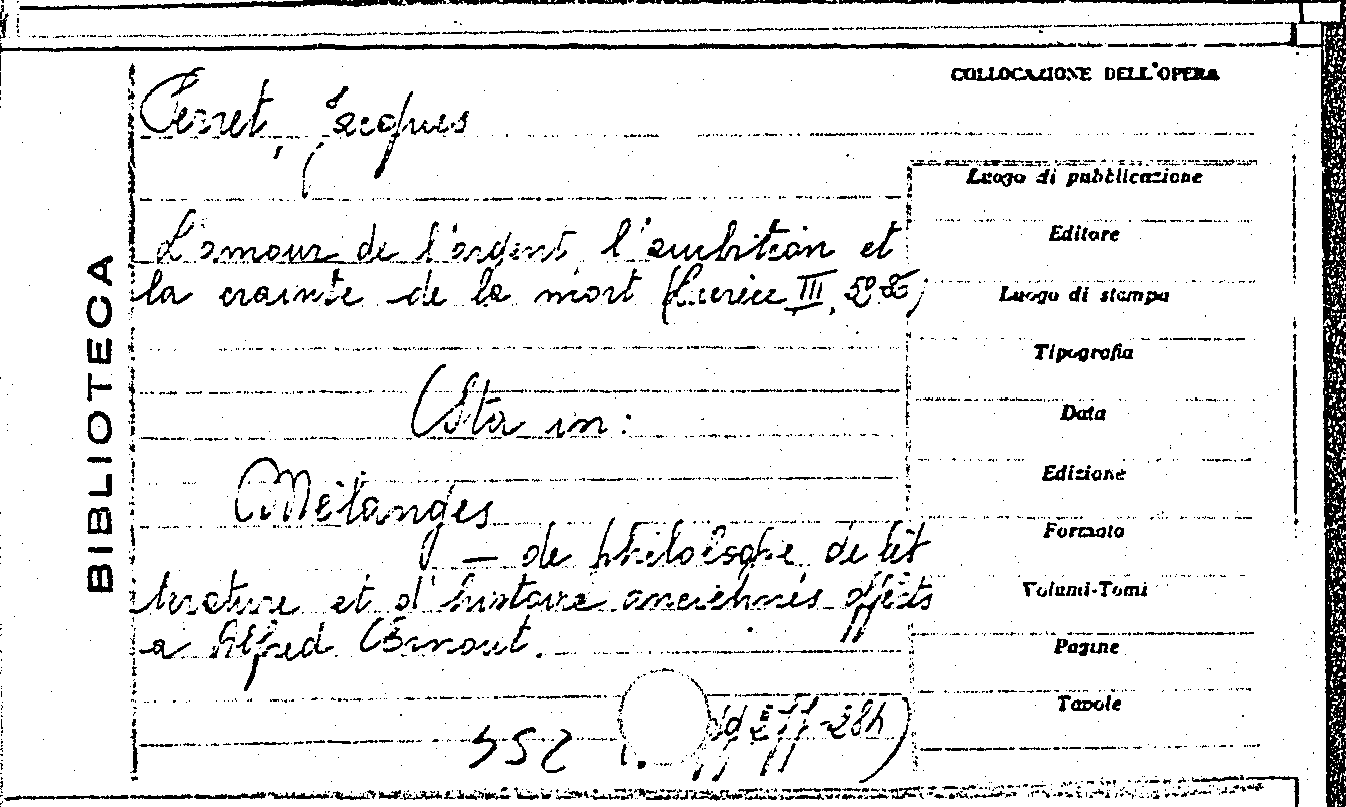 COLLOCAZIONE DELL'OPERA
BIBLIOTECA
Perret, Jacques
L'amour de l'argent, l'ambition et
la crainte de la mort (Lucrèce III, 59-86)
Sta in:
Mélanges
— de philologie de lit
térature et d'histoire anciennes offerts
a Alfred Ernout.
Luogo di pubblicazione
Editore
Luogo di stampa
Tipografia
Data
Edizione
Formato
Volumi-Tomi
Pagine
Tavole